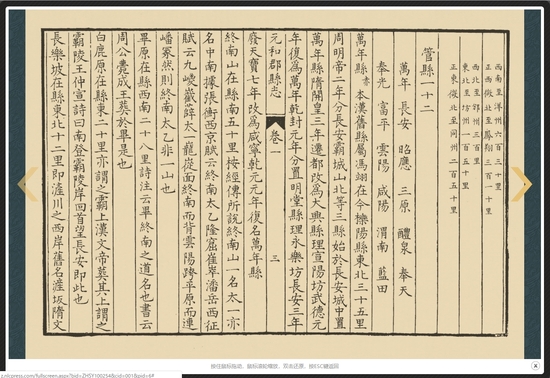 西南至洋州六百三十里
正西微北至鳳翔三百一十里
西北至邠州三百里
東北至坊州三百五十里
正東微北至同州二百五十里
管縣一十二
萬年 長安 昭應 三原 醴泉 奉天
奉先 富平 雲陽 咸陽 渭南 藍田
萬年縣赤 本漢舊縣屬馮翊在今櫟陽縣東北三十五里
周明帝二年分長安霸城山北等三縣始於長安城中置
萬年縣隋開皇三年遷都改為大興縣理宣陽坊武德元
年復為萬年乾封元年分置明堂縣理永樂坊長安三年
元和郡縣志 卷一 三
廢天寶七年改為咸寧乾元元年復名萬年縣
終南山在縣南五十里按經傳所說終南山一名太一亦
名中南據張衡西京賦云終南太乙隆窟崔崒潘岳西征
賦云九嵕巀嶭太一巃嵸面終南而背雲陽跨平原而連
嶓冢然則終南太乙非一山也
畢原在縣西南二十八里詩注云畢終南之道名也書云
周公薨成王葬於畢是也
白鹿原在縣東二十里亦謂之霸上漢文帝葬其上謂之
霸陵王仲宣詩曰南登霸陵岸回首望長安即此也
長樂坡在縣東北十二里即滻川之西岸舊名滻坂隋文
按住鼠标拖动，鼠标滚轮缩放，双击还原，按ESC键返回